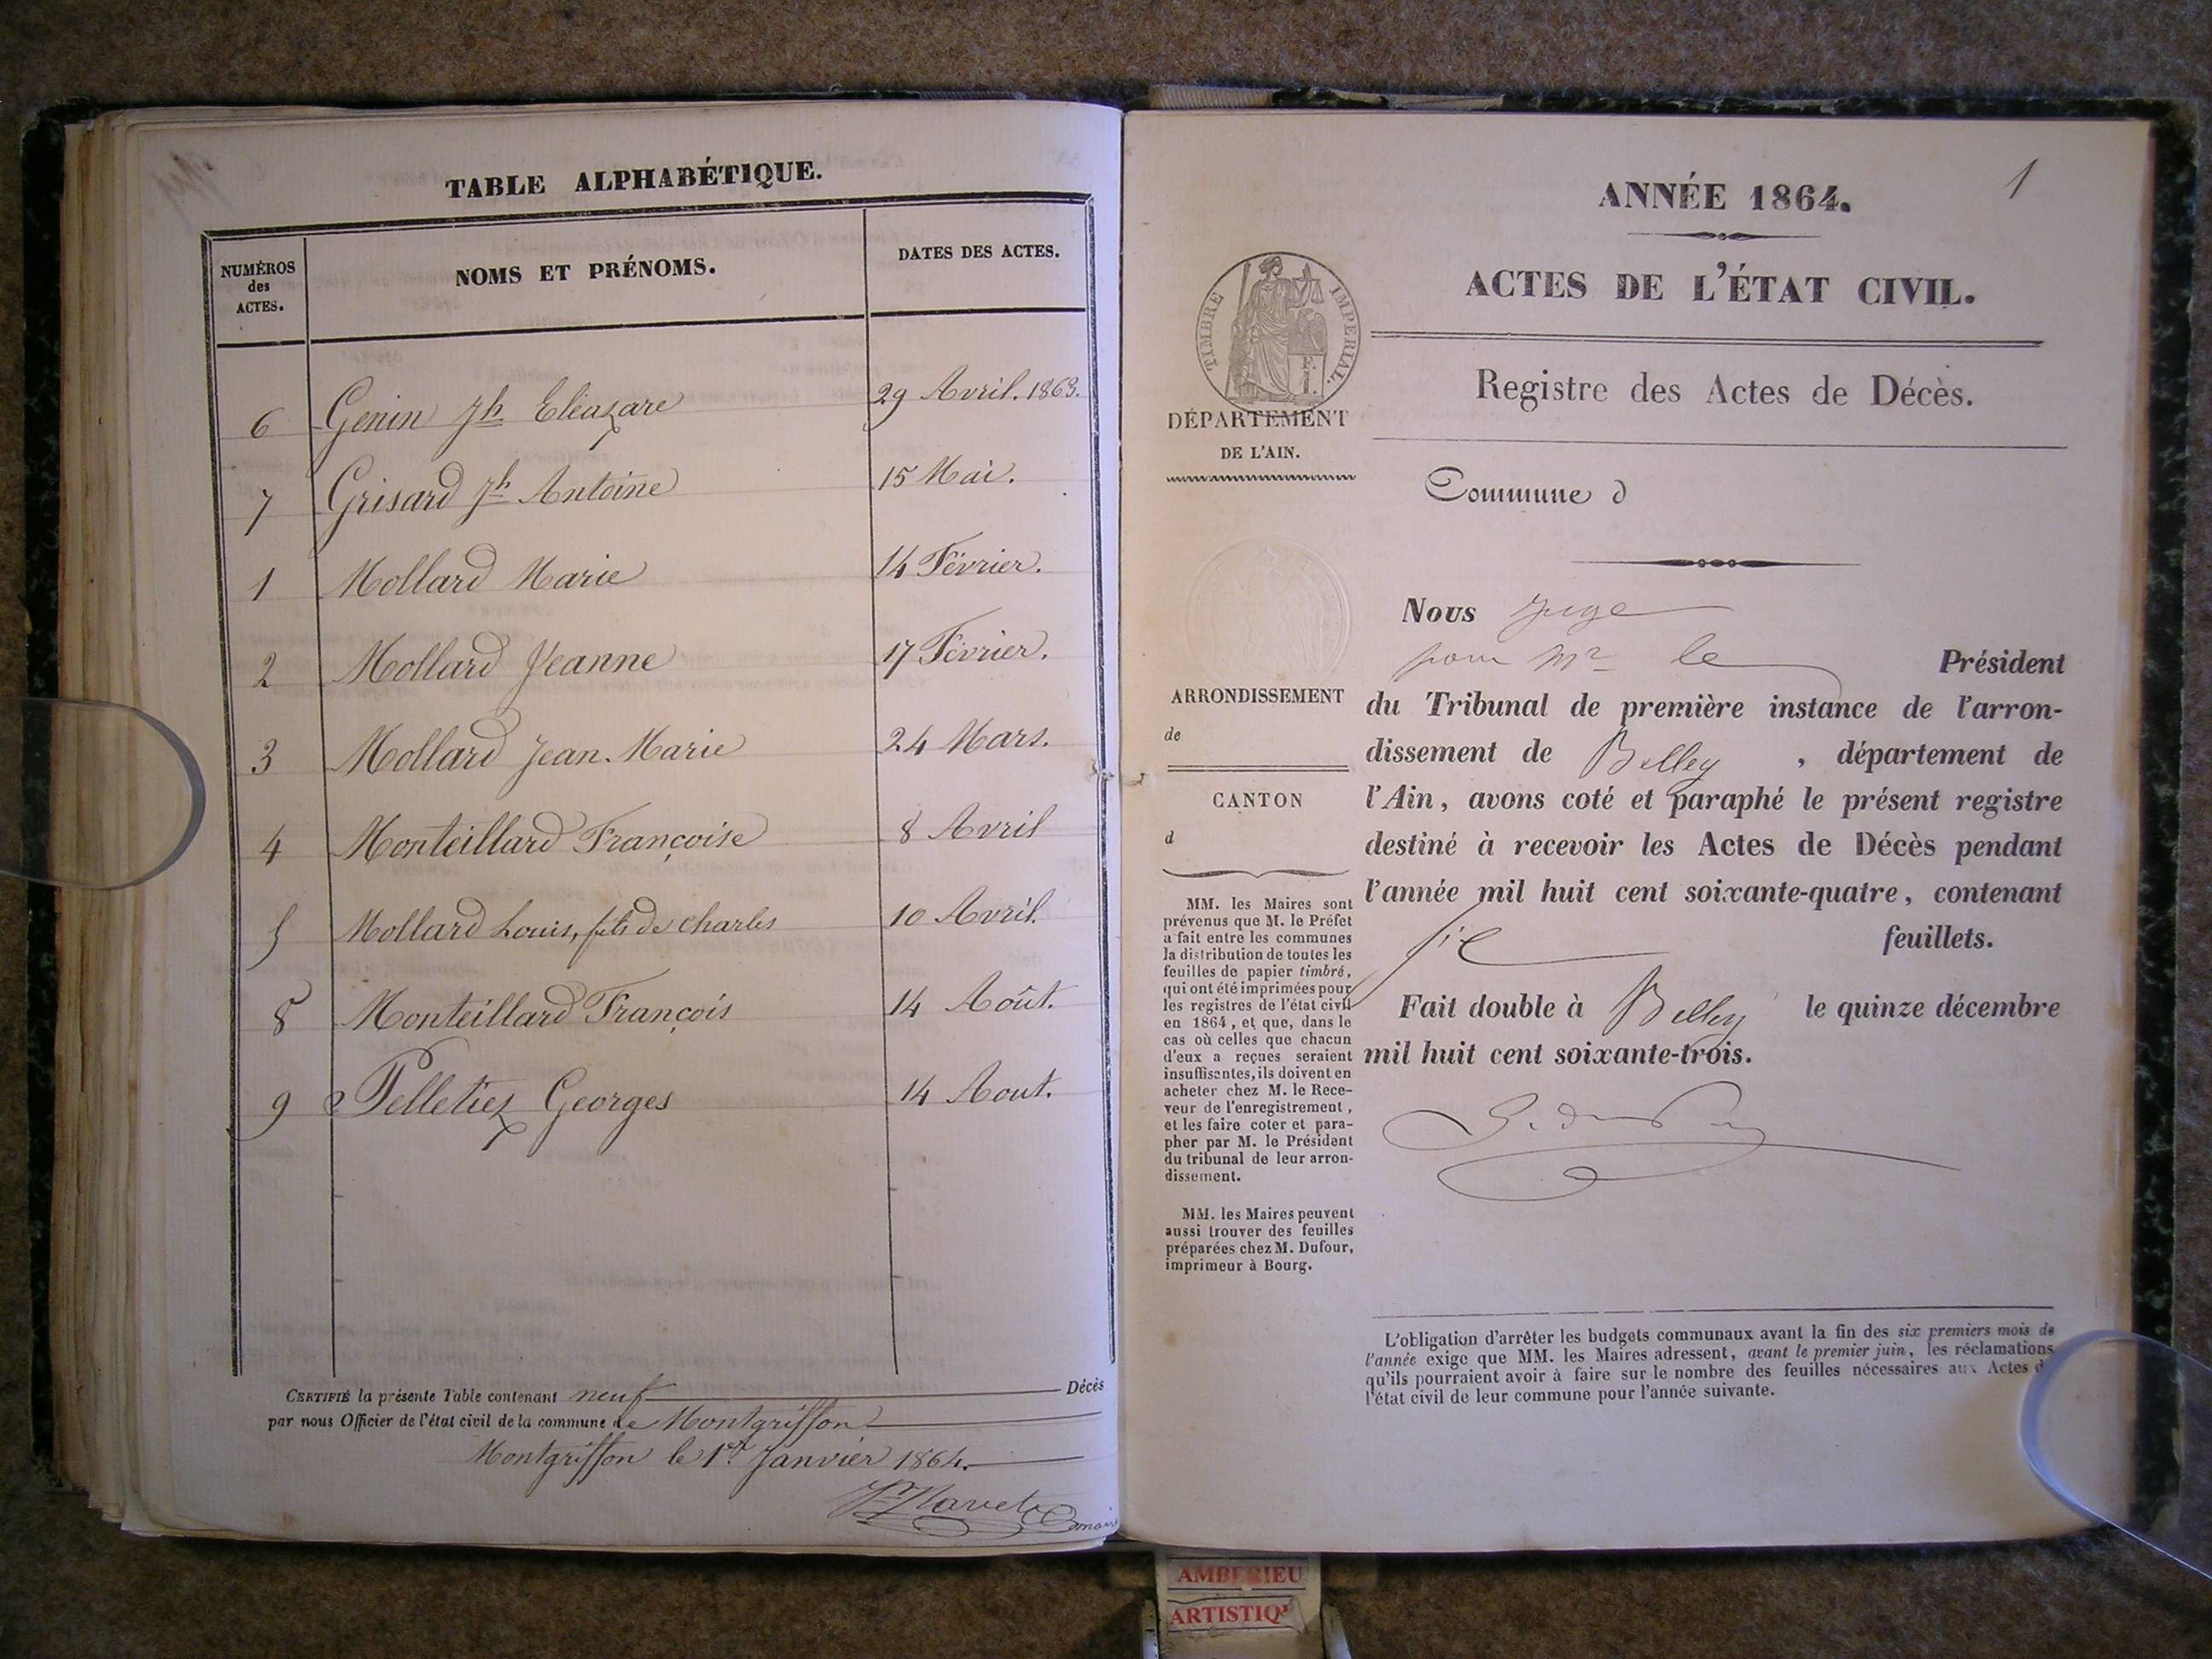 TABLE ALPHABÉTIQUE.
NUMÉROS
des
ACTES.
NOMS ET PRÉNOMS.
DATES DES ACTES.
6 Genin Jh Eléazare 29 Avril. 1863.
7 Grisard Jh Antoine 15 Mai.
1 Mollard Marie 14 Février.
2 Mollard Jeanne 17 Février.
3 Mollard Jean-Marie 24 Mars.
4 Monteillard Françoise 8 Avril
5 Mollard Louis, fils de Charles 10 Avril.
8 Monteillard François 14 Août.
9 Pelletiez Georges 14 Aout.
CERTIFIÉ la présente Table contenant neuf Décès
par nous Officier de l'état civil de la commune de Montgriffon
Montgriffon le 1er Janvier 1864.
maire
1
ANNÉE 1864.
ACTES DE L'ÉTAT CIVIL.
TIMBRE IMPÉRIAL.
Registre des Actes de Décès.
DÉPARTEMENT
DE L'AIN.
Commune d
Nous Juge
pour Mr le Président
du Tribunal de première instance de l'arron-
dissement de Belley, département de
l'Ain, avons coté et paraphé le présent registre
destiné à recevoir les Actes de Décès pendant
l'année mil huit cent soixante-quatre, contenant
feuillets.
Fait double à Belley le quinze décembre
mil huit cent soixante-trois.
ARRONDISSEMENT
de
CANTON
d
MM. les Maires sont
prévenus que M. le Préfet
a fait entre les communes
la distribution de toutes les
feuilles de papier timbré,
qui ont été imprimées pour
les registres de l'état civil
en 1864, et que, dans le
cas où celles que chacun
d'eux a reçues seraient
insuffisantes, ils doivent en
acheter chez M. le Rece-
veur de l'enregistrement,
et les faire coter et para-
pher par M. le Président
du tribunal de leur arron-
dissement.
MM. les Maires peuvent
aussi trouver des feuilles
préparées chez M. Dufour,
imprimeur à Bourg.
L'obligation d'arrêter les budgets communaux avant la fin des six premiers mois de
l'année exige que MM. les Maires adressent, avant le premier juin, les réclamations
qu'ils pourraient avoir à faire sur le nombre des feuilles nécessaires aux Actes d
l'état civil de leur commune pour l'année suivante.
AMBERIEU
ARTISTIQ